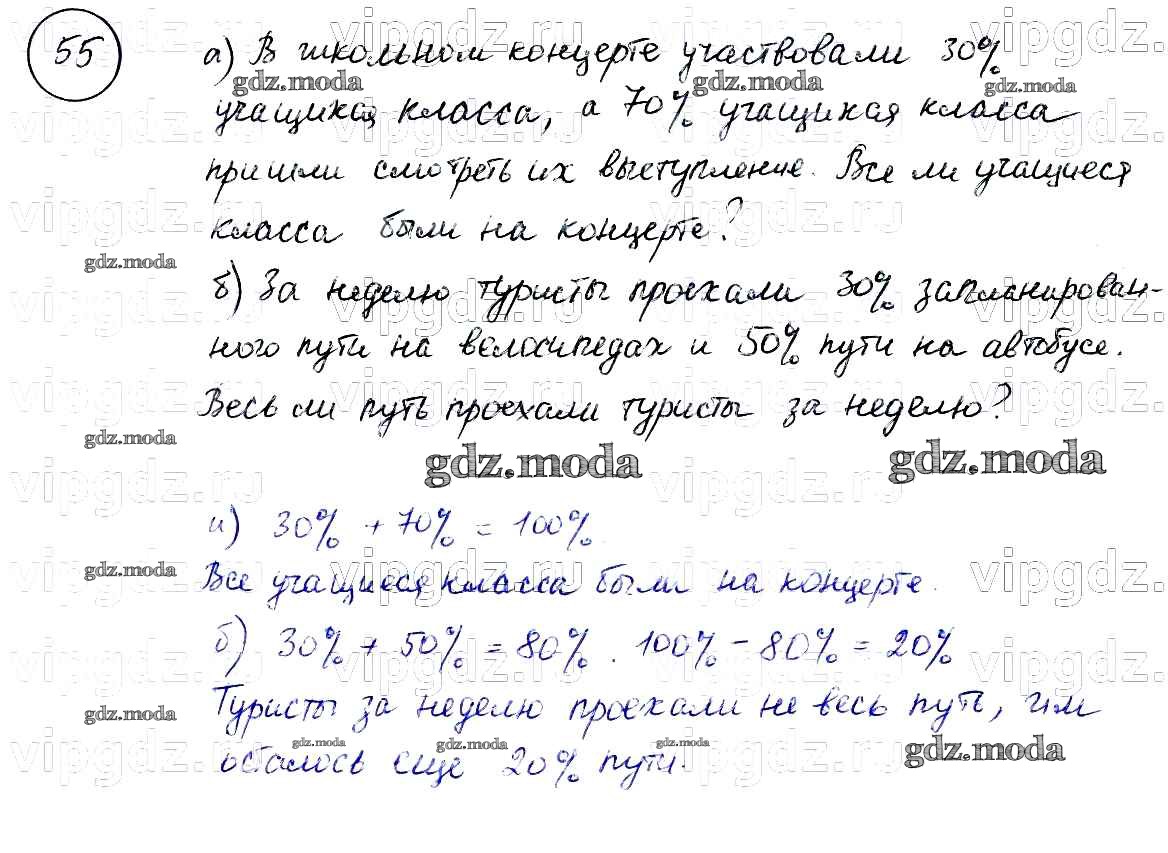 55
а) В школьном концерте участвовали 30%
учащихся класса, а 70% учащихся класса
пришли смотреть их выступление. Все ли учащиеся
класса были на концерте?
б) За неделю туристы проехали 30% запланирован-
ного пути на велосипедах и 50% пути на автобусе.
Весь ли путь проехали туристы за неделю?
а) 30% + 70% = 100%.
Все учащиеся класса были на концерте.
б) 30% + 50% = 80%. 100% - 80% = 20%
Туристы за неделю проехали не весь путь, им
осталось еще 20% пути.
gdz.moda
vipgdz.ru